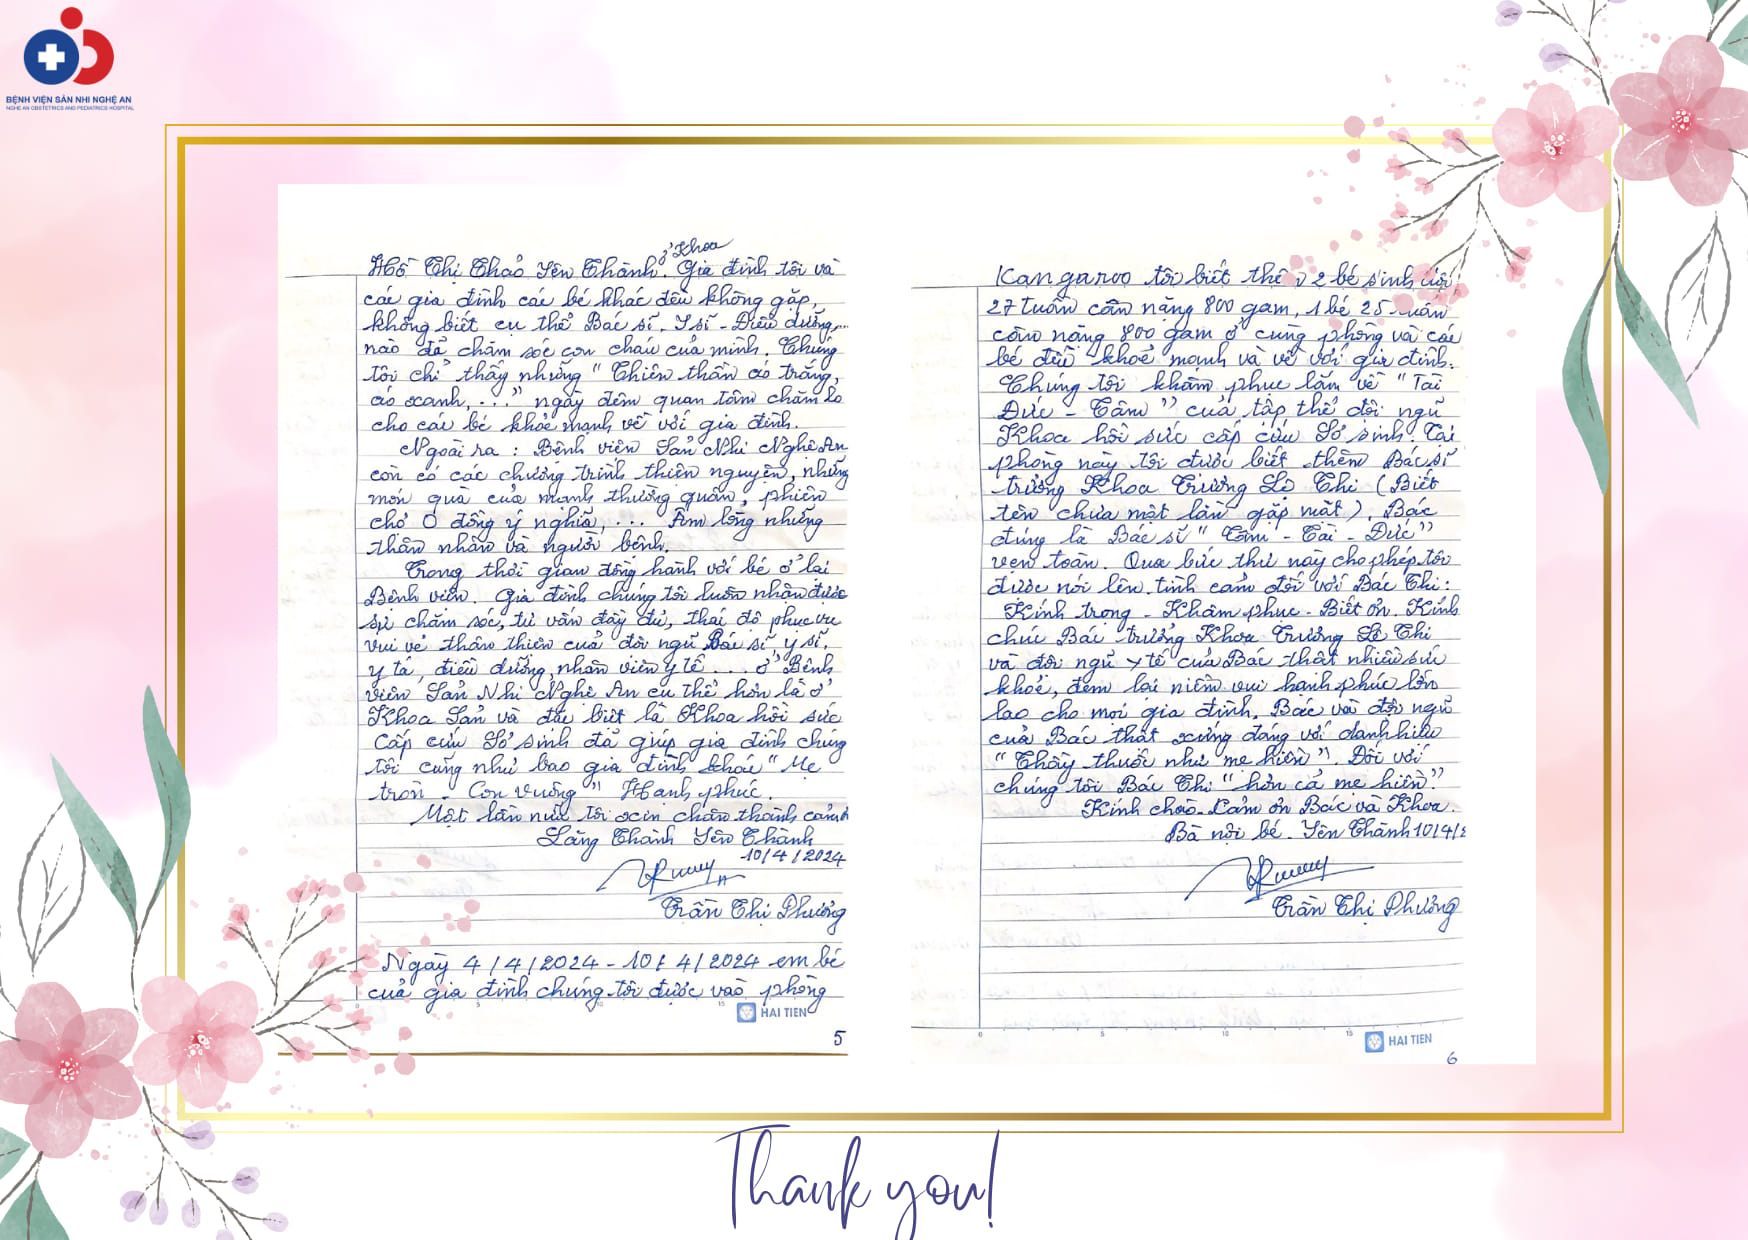 BỆNH VIỆN SẢN NHI NGHỆ AN
NGHE AN OBSTETRICS AND PEDIATRICS HOSPITAL
Hồ Thị Thảo Yên Thành. Ở Khoa Gia đình tôi và
các gia đình các bé khác đều không gặp,
không biết cụ thể Bác sĩ. Y sĩ - Điều dưỡng...
nào đã chăm sóc con cháu của mình. Chúng
tôi chỉ thấy những "Thiên thần áo trắng,
áo xanh,..." ngày đêm quan tâm chăm lo
cho các bé khỏe mạnh về với gia đình.
Ngoài ra: Bệnh viện Sản Nhi Nghệ An
còn có các chương trình thiện nguyện, những
món quà của mạnh thường quân, phiên
chợ 0 đồng ý nghĩa,... Ấm lòng những
thân nhân và người bệnh.
Trong thời gian đồng hành với bé ở lại
Bệnh viện. Gia đình chúng tôi luôn nhận được
sự chăm sóc, tư vấn đầy đủ, thái độ phục vụ
vui vẻ thân thiện của đội ngũ Bác sĩ, y sĩ,
y tá, điều dưỡng, nhân viên y tế.... ở Bệnh
viện Sản Nhi Nghệ An cụ thể hơn là ở
Khoa Sản và đặc biệt là Khoa hồi sức
Cấp cứu Sơ sinh đã giúp gia đình chúng
tôi cũng như bao gia đình khác "Mẹ
tròn - Con vuông" Hạnh phúc.
Một lần nữa tôi xin chân thành cảm
Lăng Thành Yên Thành
10/4/2024
Trần Thị Phương
Ngày 4/4/2024 - 10/4/2024 em bé
của gia đình chúng tôi được vào phòng
HAI TIEN
5
Kangaroo tôi biết thêm 2 bé sinh
27 tuần cân nặng 800 gam, 1 bé 25 tuần
cân nặng 800 gam ở cùng phòng và các
bé đều khoẻ mạnh và về với gia đình.
Chúng tôi khâm phục lắm về "Tài
Đức - Tâm" của tập thể đội ngũ
Khoa hồi sức cấp cứu Sơ sinh. Tại
phòng này tôi được biết thêm Bác sĩ
trưởng Khoa Trương Lệ Thi (Biết
tên chưa một lần gặp mặt). Bác
đúng là Bác sĩ "Tâm - Tài - Đức"
vẹn toàn. Qua bức thư này cho phép tôi
được nói lên tình cảm đối với Bác Thi:
Kính trọng - Khâm phục - Biết ơn. Kính
chúc Bác trưởng Khoa Trương Lệ Thi
và đội ngũ y tế của Bác thật nhiều sức
khoẻ, đem lại niềm vui hạnh phúc lớn
lao cho mọi gia đình. Bác và đội ngũ
của Bác thật xứng đáng với danh hiệu
"Thầy thuốc như mẹ hiền". Đối với
chúng tôi Bác Thi "hơn cả mẹ hiền".
Kính chào. Cảm ơn Bác và Khoa.
Bà nội bé. Yên Thành 10/4/2
Trần Thị Phương
HAI TIEN
6
Thank you!